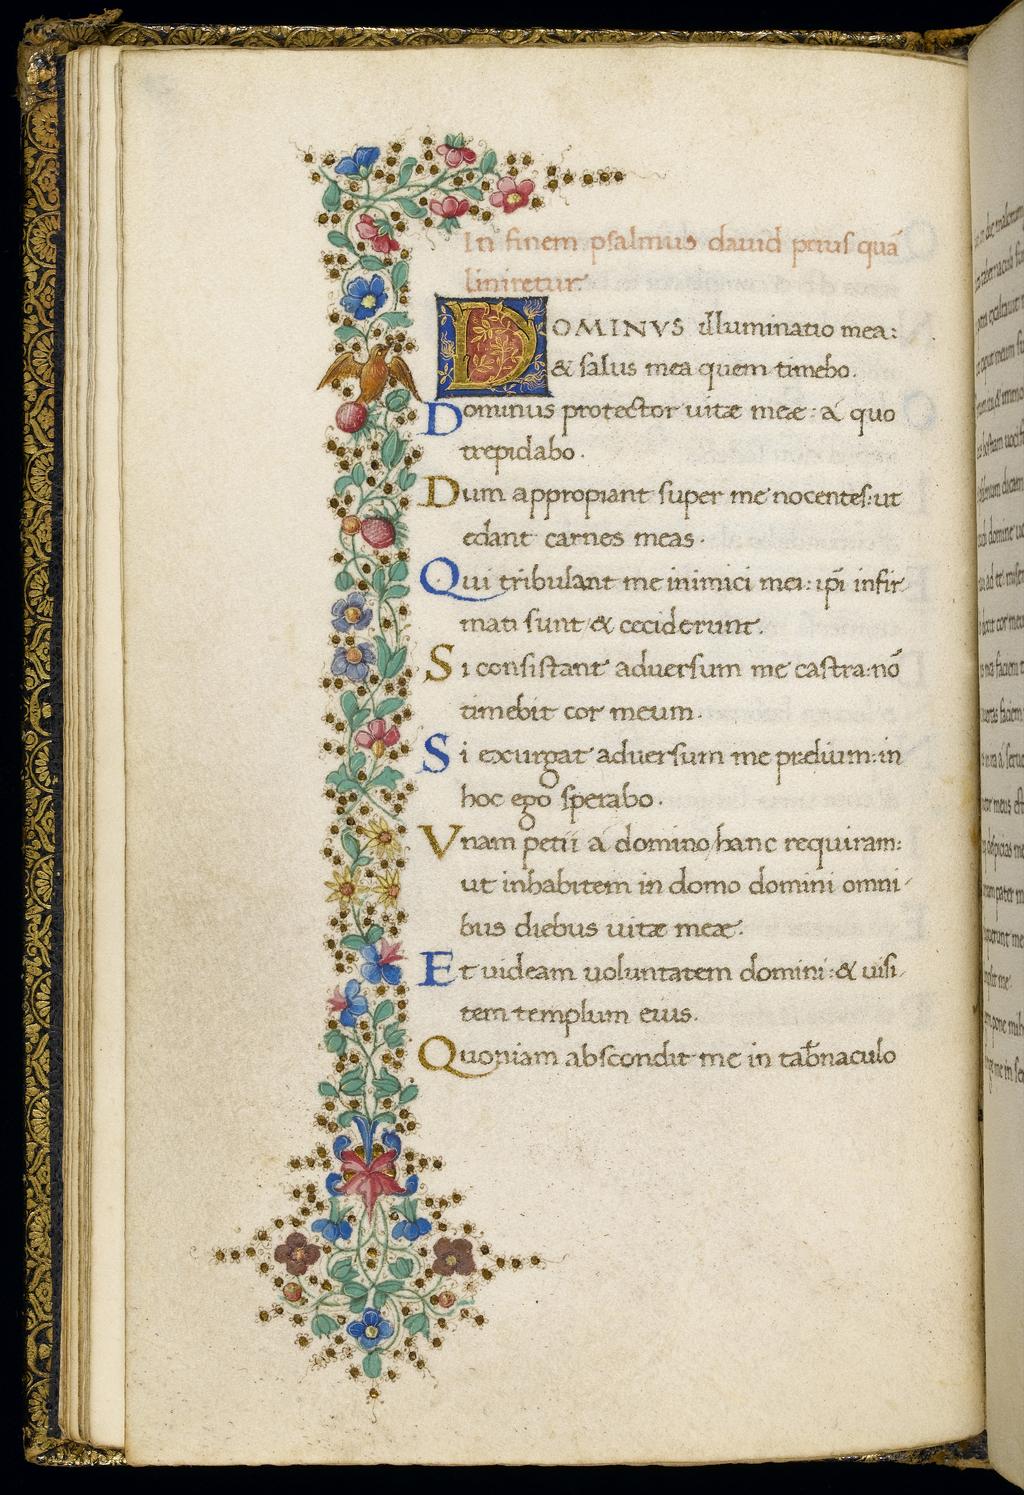 In finem psalmus dauid prius quā
liniretur.
DOMINVS illuminatio mea:
& salus mea quem timebo.
Dominus protector uitæ meæ: a quo
trepidabo.
Dum appropiant super me nocentes: ut
edant carnes meas.
Qui tribulant me inimici mei: ip̄i infir-
mati sunt & ceciderunt.
Si consistant aduersum me castra: nō
timebit cor meum.
Si exurgat aduersum me prelium: in
hoc ego sperabo.
Vnam petii a domino hanc requiram:
ut inhabitem in domo domini omni-
bus diebus uitæ meæ.
Et uideam uoluntatem domini: & uisi-
tem templum eius.
Quoniam abscondit me in tab̄naculo